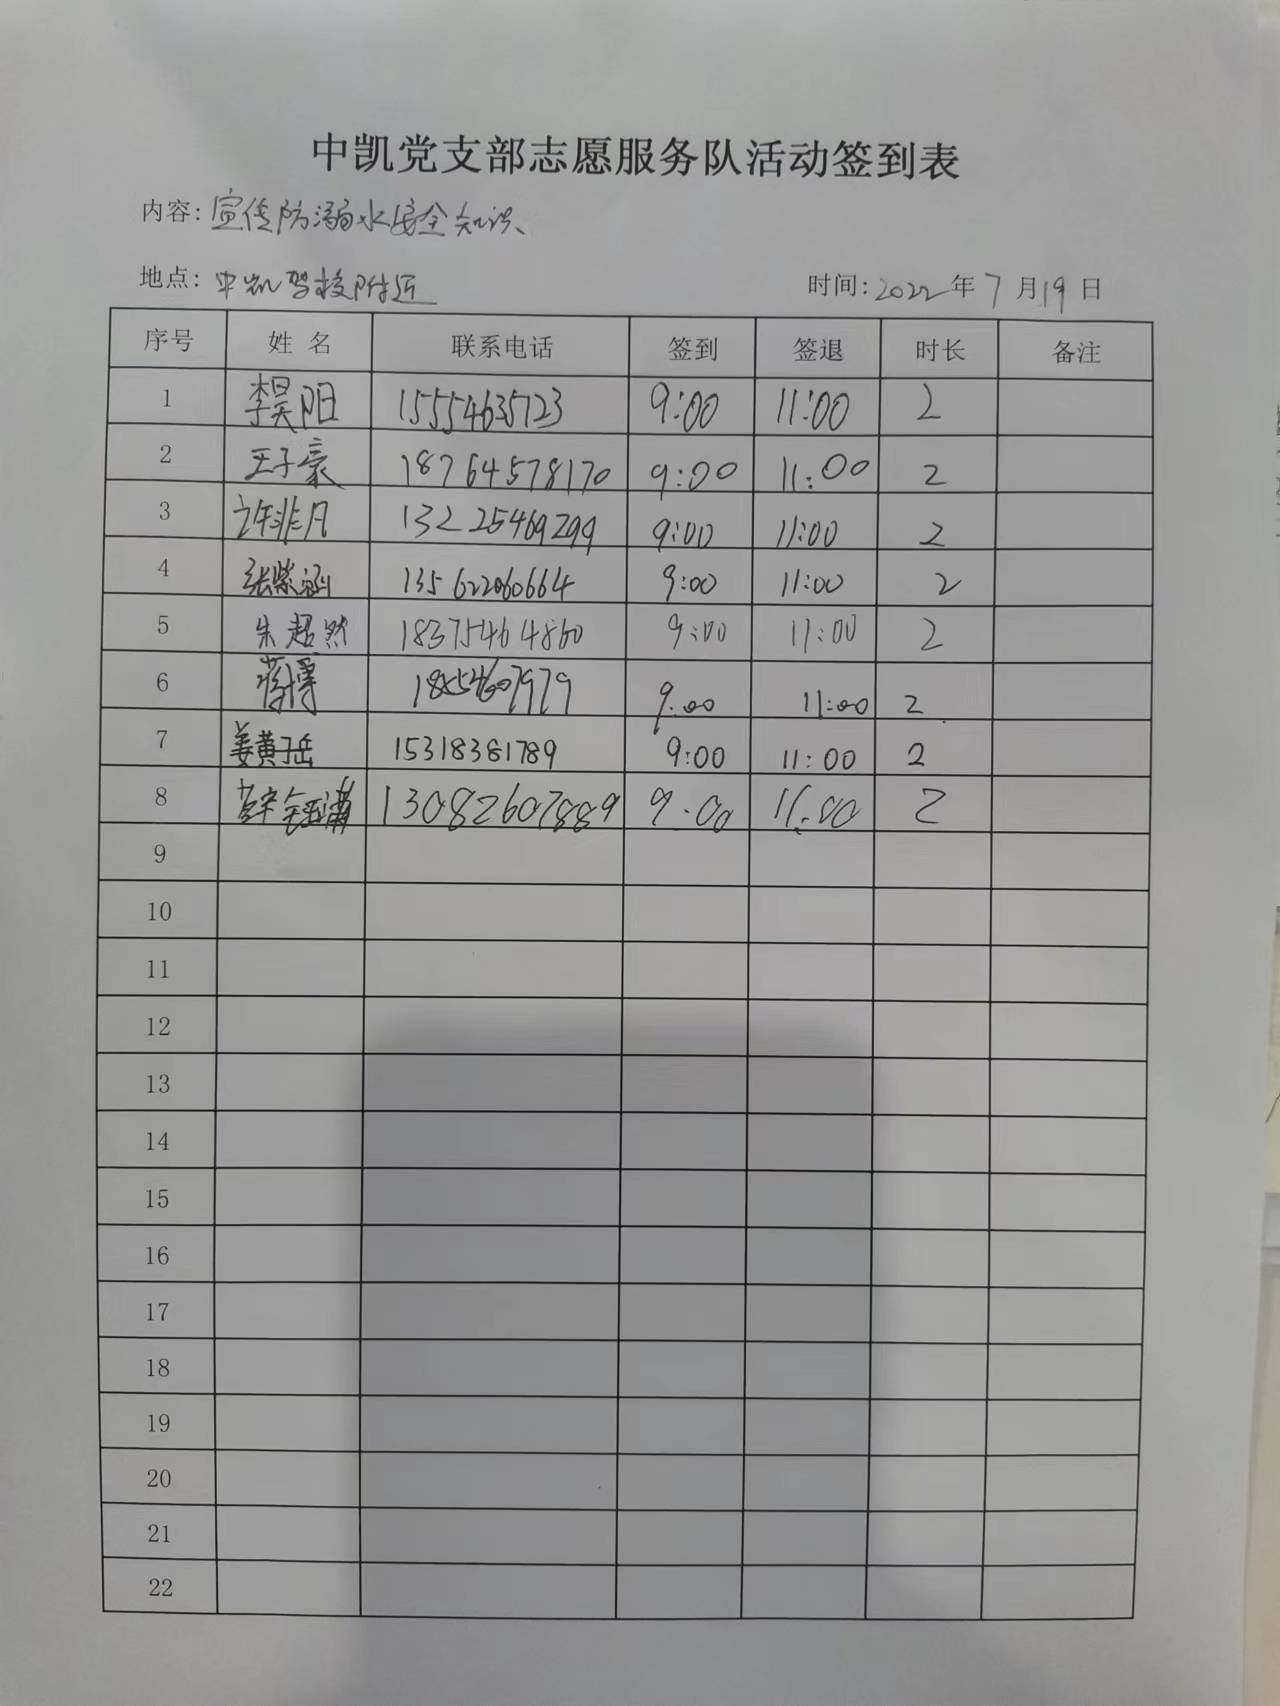 中凯党支部志愿服务队活动签到表
内容: 宣传防溺水安全知识、
地点: 中凯驾校附近 时间: 2022 年 7 月 19 日
序号 姓名 联系电话 签到 签退 时长 备注
1 李昊阳 15554635723 9:00 11:00 2
2 王子豪 18764578170 9:00 11:00 2
3 许非凡 13225469299 9:00 11:00 2
4 张紫涵 135622060664 9:00 11:00 2
5 朱超然 18375464860 9:00 11:00 2
6 蒋博 18554607979 9:00 11:00 2
7 姜黄子岳 15318381789 9:00 11:00 2
8 13082607889 9:00 11:00 2
9
10
11
12
13
14
15
16
17
18
19
20
21
22